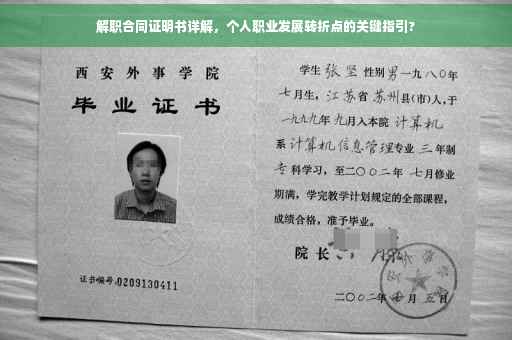 解职合同证明书详解，个人职业发展转折点的关键指引？
西安外事学院
毕业证书
证书编号:0209130411
学生张坚性别男一九八〇年
七月生，江苏省苏州县(市)人,于
一九九九年九月入本院计算机
系计算机信息管理专业三年制
专科学习，至二〇〇二年七月修业
期满，学完教学计划规定的全部课程，
成绩合格，准予毕业。
院长
二〇〇二年七月五日